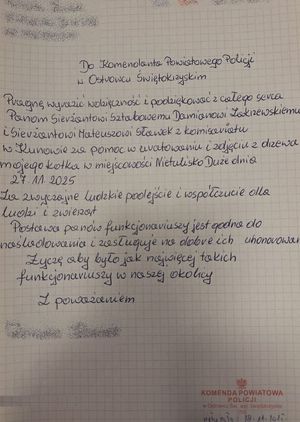 Do Komendanta Powiatowego Policji
w Ostrowcu Świętokrzyskim
Pragnę wyrazić wdzięczność i podziękować z całego serca
Panom Sierżantowi Sztabowemu Damianowi Zakrzewskiemu
i Sierżantowi Mateuszowi Sławek z komisariatu
w Kunowie za pomoc w uratowaniu i zdjęciu z drzewa
mojego kotka w miejscowości Nietulisko Duże dnia
27.11.2025
Za zwyczajne ludzkie podejście i współczucie dla
ludzi i zwierząt
Postawa panów funkcjonariuszy jest godna do
naśladowania i zasługuje na dobre ich uhonorowan
Życzę aby było jak najwięcej takich
funkcjonariuszy w naszej okolicy
Z poważaniem
KOMENDA POWIATOWA
POLICJI